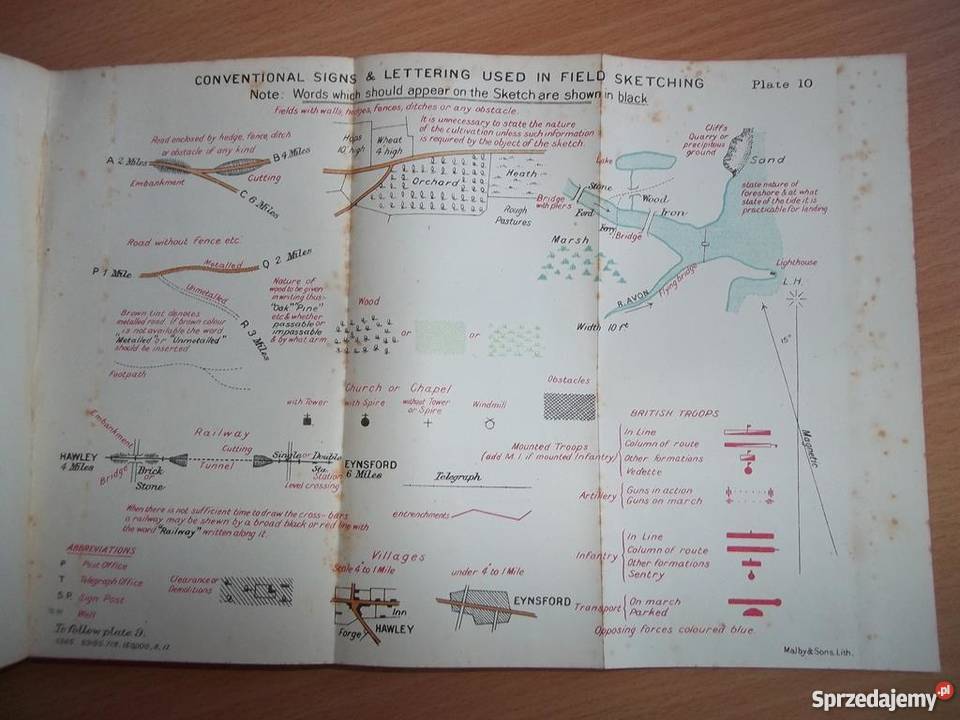 CONVENTIONAL SIGNS & LETTERING USED IN FIELD SKETCHING
Plate 10
Note: Words which should appear on the Sketch are shown in black
Fields with walls, hedges, fences, ditches or any obstacle.
Road enclosed by hedge, fence, ditch
or obstacle of any kind
A 2 Miles
B 4 Miles
Embankment
Cutting
C 6 Miles
Hops
10' high
Wheat
4' high
It is unnecessary to state the nature
of the cultivation unless such information
is required by the object of the sketch.
Orchard
Heath
Rough
Pastures
Cliffs
Quarry or
precipitous
ground
Sand
Lake
Stone
Wood
Iron
Bridge
with piers
Ford
Ferry
Bridge
state nature of
foreshore & at what
state of the tide it is
practicable for landing
Marsh
Lighthouse
L.H.
R. AVON
Flying bridge
Width 10 ft
Road without fence etc.
P 1 Mile
Metalled
Q 2 Miles
Unmetalled
R 3 Miles
Brown tint denotes
metalled road, if brown colour
is not available the word
"Metalled" or "Unmetalled"
should be inserted
Footpath
Nature of
wood to be given
in writing thus:-
"Oak" "Pine"
etc & whether
passable or
impassable
& by what arm.
Wood
or
or
15°
Magnetic
Church or Chapel
with Tower
with Spire
without Tower
or Spire
Windmill
Obstacles
Embankment
Railway
Cutting
HAWLEY
4 Miles
Bridge
Brick
or
Stone
Tunnel
Single or Double
Sta.
Station
Level crossing
EYNSFORD
6 Miles
Telegraph
When there is not sufficient time to draw the cross-bars
a railway may be shewn by a broad black or red line with
the word "Railway" written along it.
entrenchments
BRITISH TROOPS
Mounted Troops
(add M.I. if mounted Infantry)
In Line
Column of route
Other formations
Vedette
Artillery
Guns in action
Guns on march
Infantry
In Line
Column of route
Other formations
Sentry
Transport
On march
Parked
Opposing forces coloured blue
ABBREVIATIONS
P Post Office
T Telegraph Office
S.P. Sign Post
W Well
Clearance or
Demolitions
Villages
Scale 4" to 1 Mile
under 4" to 1 Mile
Inn
Forge
HAWLEY
EYNSFORD
To follow plate 9.
Malby & Sons, Lith.
Sprzedajemy.pl